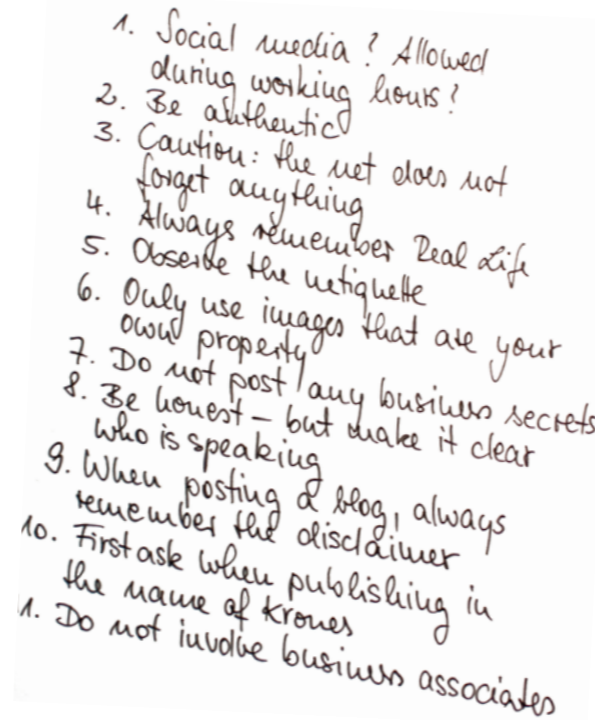 1. Social media? Allowed
during working hours?
2. Be authentic
3. Caution: the net does not
forget anything
4. Always remember Real Life
5. Observe the netiquette
6. Only use images that are your
own property
7. Do not post any business secrets
8. Be honest – but make it clear
who is speaking
9. When posting a blog, always
remember the disclaimer
10. First ask when publishing in
the name of Krones
1. Do not involve business associates